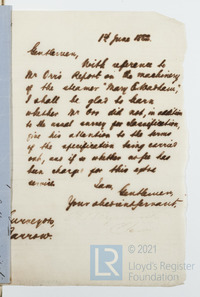 1st June 1882.
Gentlemen,
With reference to
Mr Orr's Report on the machinery
of the steamer "Mary
I shall be glad to learn
whether Mr Orr did not, in addition
to the usual survey for classification,
give his attention to the terms
of the specification being carried
out, and if so whether no fee has
been charged for this extra
service.
I am Gentlemen,
Your obedient servant,
Surveyors,
Jarrow.
© 2021
LR
Lloyd's Register
Foundation